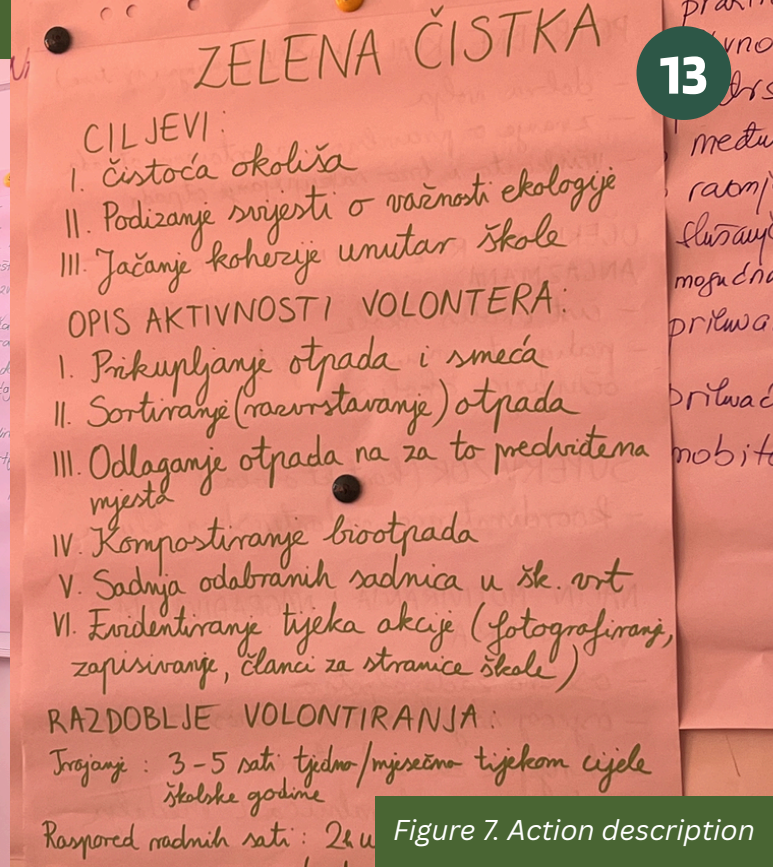 ZELENA ČISTKA
13
CILJEVI:
I. Čistoća okoliša
II. Podizanje svijesti o važnosti ekologije
III. Jačanje kohezije unutar škole
OPIS AKTIVNOSTI VOLONTERA:
I. Prikupljanje otpada i smeća
II. Sortiranje (razvrstavanje) otpada
III. Odlaganje otpada na za to predviđena
mjesta
IV. Kompostiranje biootpada
V. Sadnja odabranih sadnica u šk. vrt
VI. Evidentiranje tijeka akcije (fotografiranje,
zapisivanje, članci za stranice škole)
RAZDOBLJE VOLONTIRANJA:
Trajanje: 3-5 sati tjedno/mjesečno tijekom cijele
školske godine
Raspored radnih sati: 2h u
među
mogućno
Figure 7. Action description